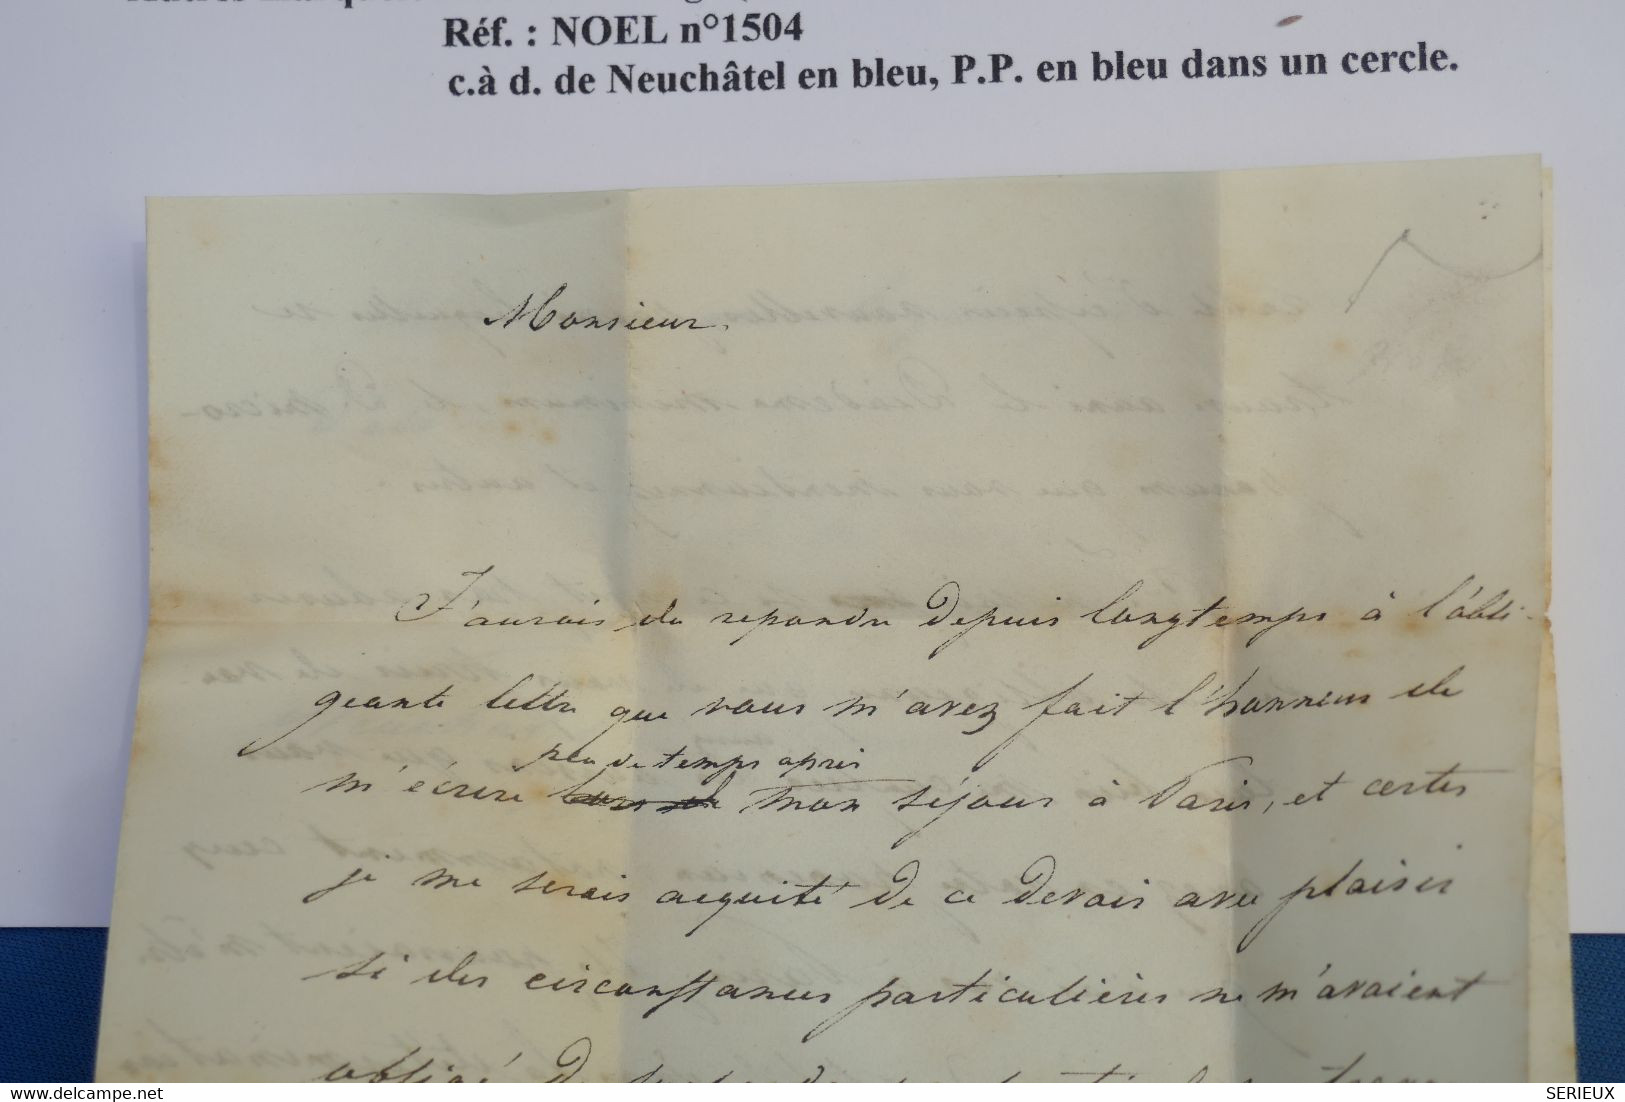 Réf. : NOEL n°1504
c.à d. de Neuchâtel en bleu, P.P. en bleu dans un cercle.
Monsieur.
J'aurais du repondre depuis longtemps à l'obli-
geante lettre que vous m'avez fait l'honneur de
peu de temps après
m'écrire mon séjour à Paris, et certes
je me serais acquité de ce devoir avec plaisir
si des circonstances particulières ne m'avaient
obligé de
www.delcampe.net
SERIEUX